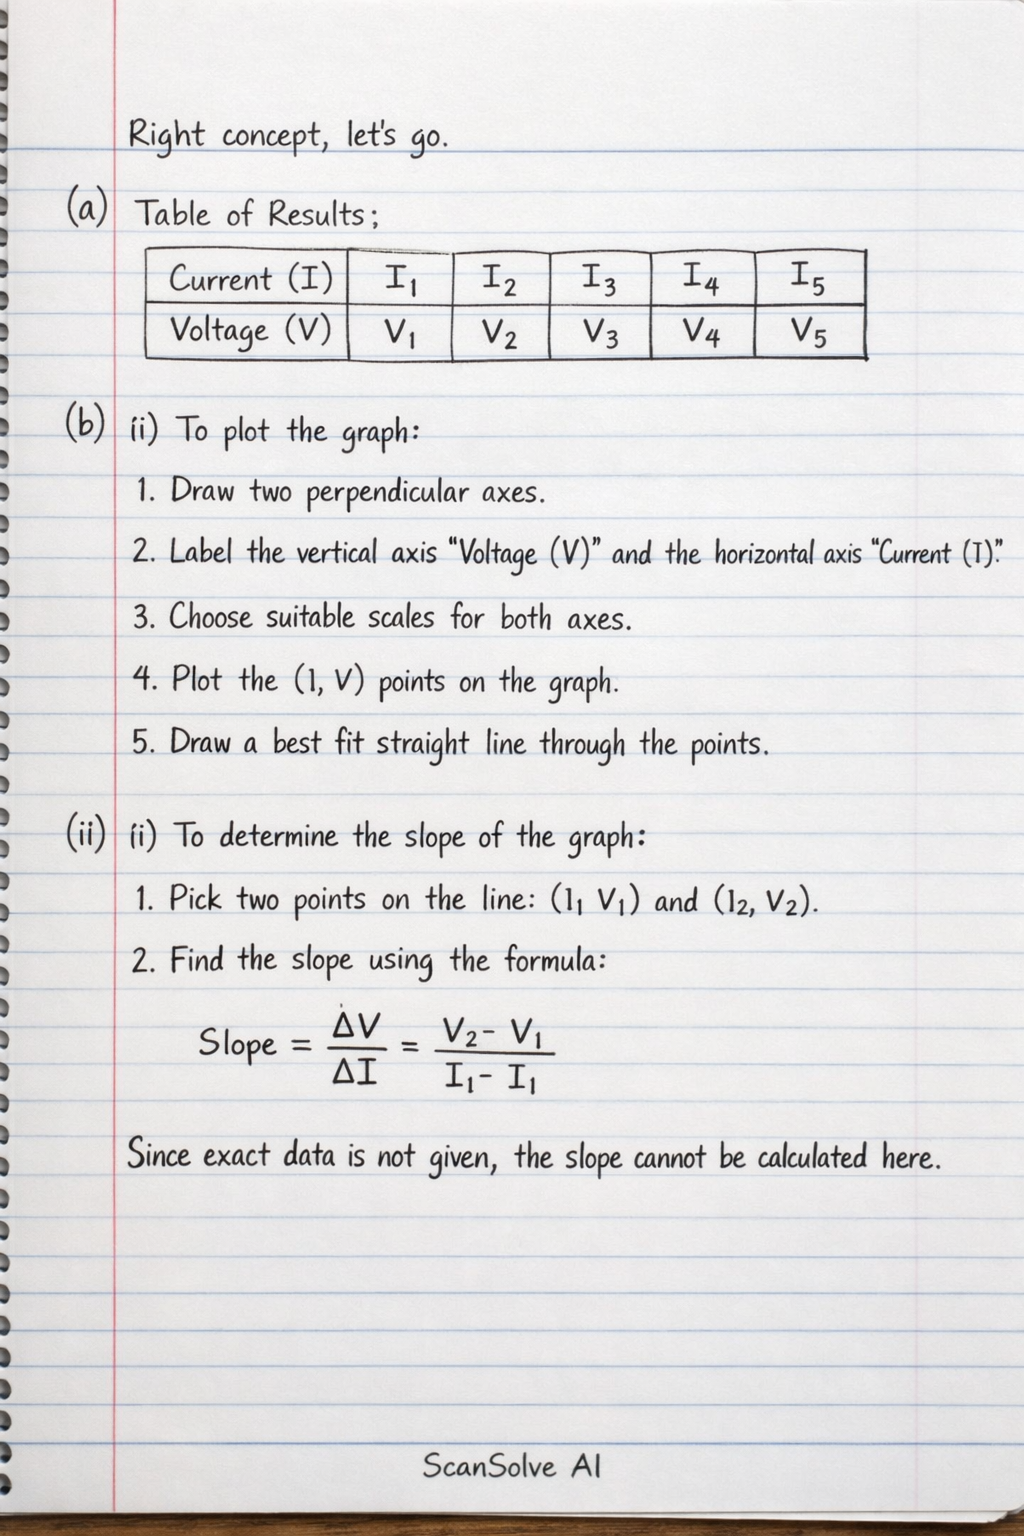 Right concept, let's go.
(a) Table of Results;
Current (I) I₁ I₂ I₃ I₄ I₅
Voltage (V) V₁ V₂ V₃ V₄ V₅
(b) (ii) To plot the graph:
1. Draw two perpendicular axes.
2. Label the vertical axis "Voltage (V)" and the horizontal axis "Current (I)."
3. Choose suitable scales for both axes.
4. Plot the (1, V) points on the graph.
5. Draw a best fit straight line through the points.
(ii) (i) To determine the slope of the graph:
1. Pick two points on the line: (1₁ V₁) and (1₂, V₂).
2. Find the slope using the formula:
Slope = ΔV/ΔI = V₂ - V₁/I₁ - I₁
Since exact data is not given, the slope cannot be calculated here.
ScanSolve AI